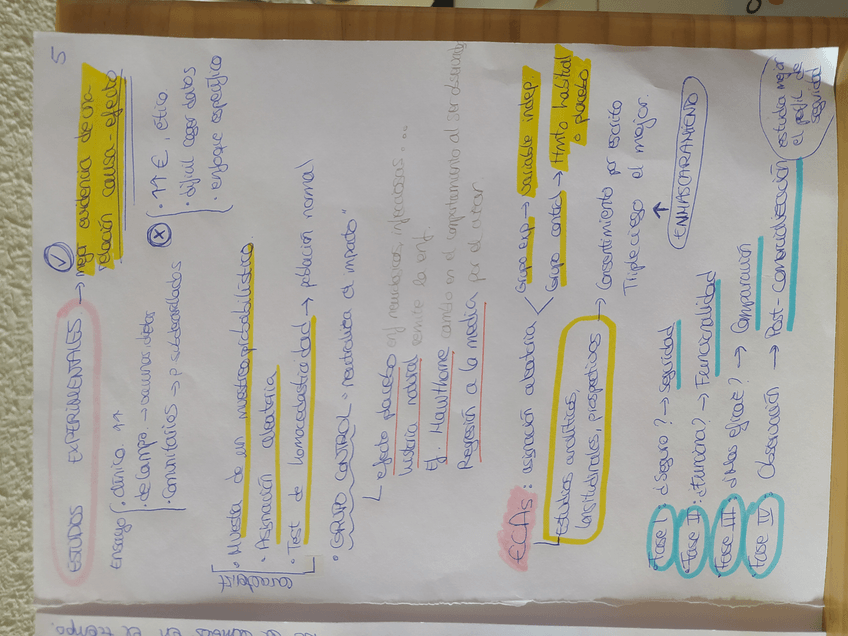 5
ESTUDIOS EXPERIMENTALES → mejor evidencia de una
relación causa-efecto
Ensayo · clínico ↑↑
· de campo → vacunas, dietas
· Comunitarios → p. subdesarrollados
· ↑↑ €, ética
· difícil coger datos
· enfoque específico
· Muestra de un muestreo probabilístico
· Asignación aleatoria
· Test de homocedasticidad → población normal
· GRUPO CONTROL "neutraliza el impacto"
efecto placebo enf neurológicas, infecciosas...
historia natural
Ef. Hawthorne cambio en el comportamiento al ser observado
Regresión a la media por el azar
ECAs: asignación aleatoria < Grupo exp → variable indep.
Grupo control → ttmto habitual
o placebo
Estudios analíticos,
longitudinales, prospectivos
→ Consentimiento por escrito
Triple ciego el mejor.
↑
ENMASCARAMIENTO
· Fase I: ¿Seguro? → Seguridad
· Fase II: ¿Funciona? → Funcionalidad
· Fase III: ¿Mas eficaz? → Comparación
· Fase IV: Observación → Post-comercialización
estudia mejor
el perfil de
seguridad